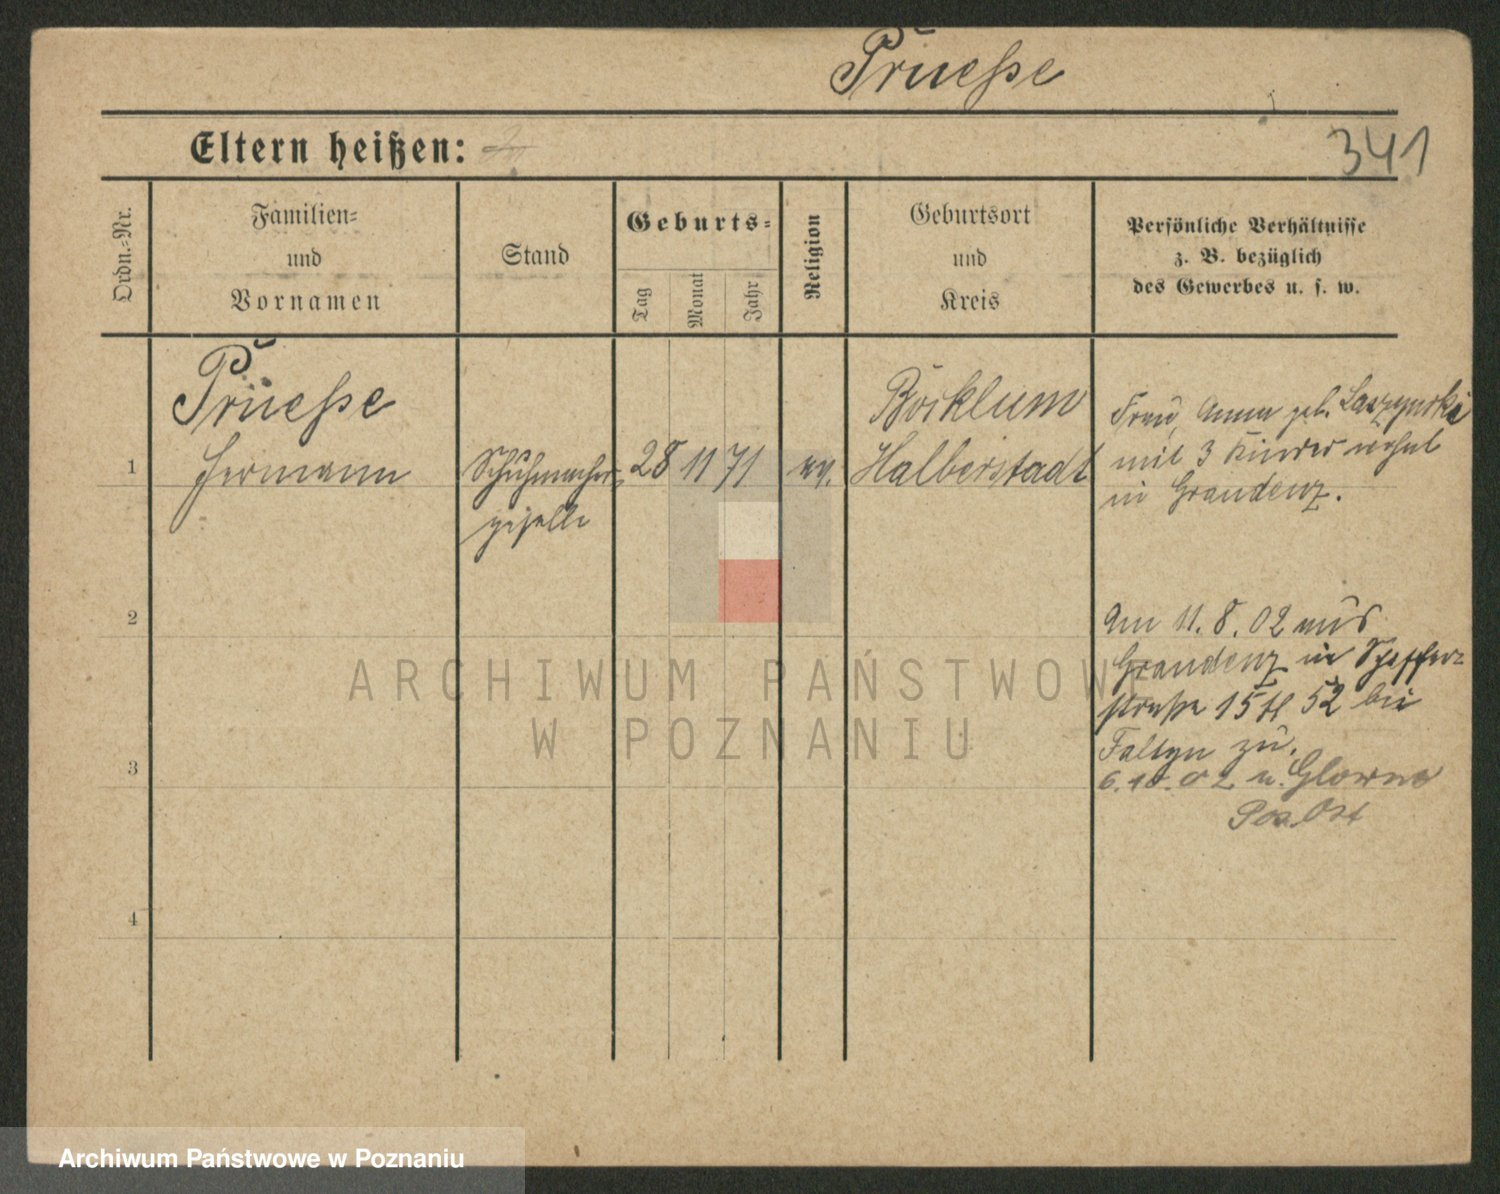 Pruesse
Eltern heißen:
341
Ordn.-Nr.
Familien-
und
Vornamen
Stand
Geburts-
Tag
Monat
Jahr
Religion
Geburtsort
und
Kreis
Persönliche Verhältnisse
z. B. bezüglich
des Gewerbes u. s. w.
1
Pruesse
Hermann
Schuhmacher-
geselle
28 11 71
ev.
Halberstadt
Frau, Anna geb. Laszynska
mit 3 Kinder wohnt
in Graudenz.
2
Am 11. 8. 02 aus
Graudenz in
straße 15 52 bei
zu.
3
6. 10. 02 n. Glowno
Pos. Ost
4
ARCHIWUM PAŃSTWOWE
W POZNANIU
Archiwum Państwowe w Poznaniu